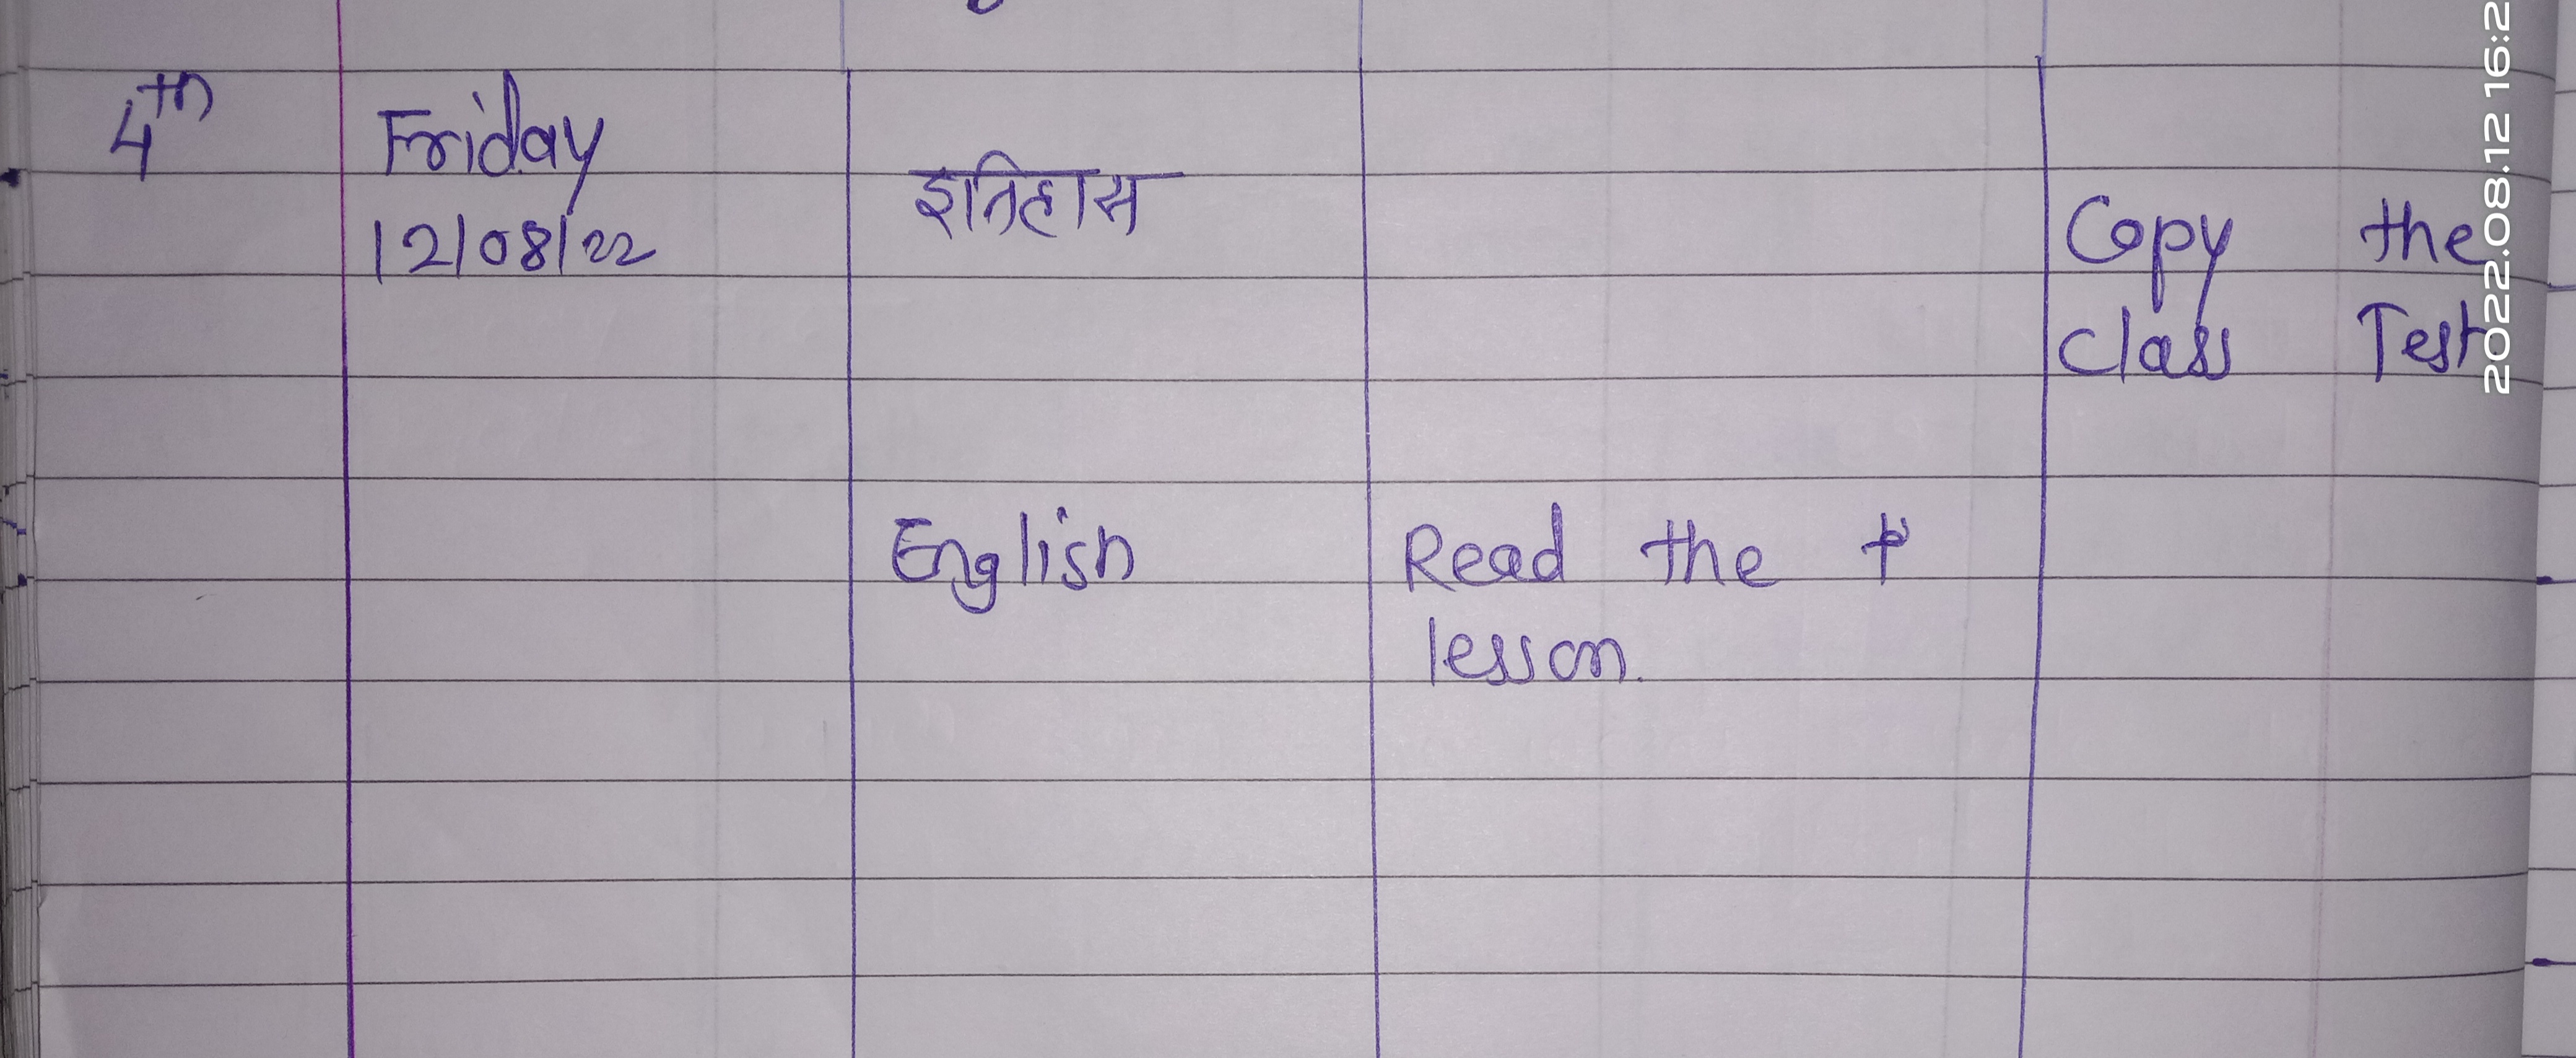 4th Friday
12/08/22
इतिहास
Copy the
class Test
English Read the
lesson.
2022.08.12 16:2